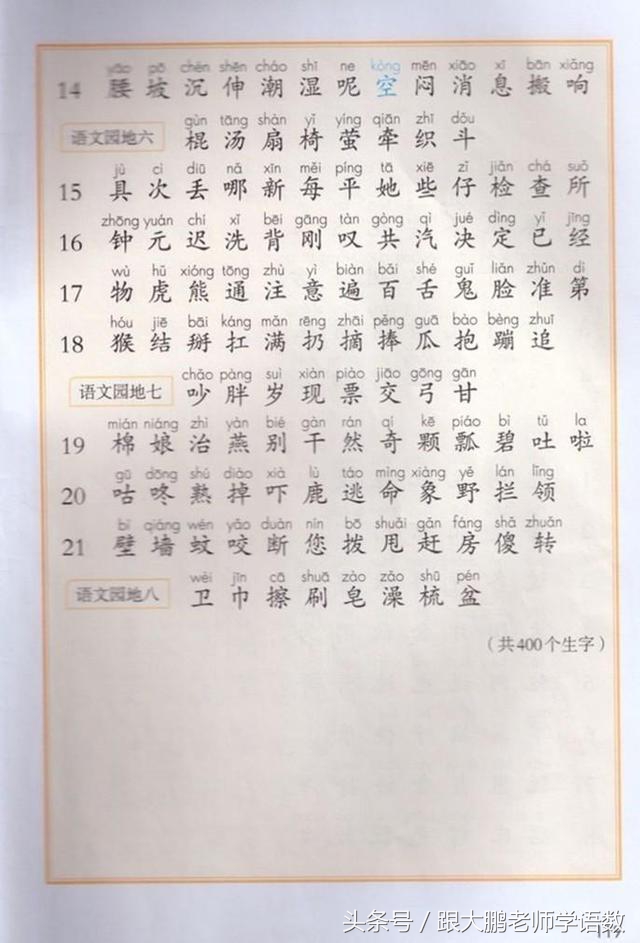 yāo pō chén shēn cháo shī ne kòng mēn xiāo xī bān xiǎng
14 腰 坡 沉 伸 潮 湿 呢 空 闷 消 息 搬 响
gùn tāng shàn yǐ yíng qiān zhī dǒu
语文园地六 棍 汤 扇 椅 萤 牵 织 斗
jù cì diū nǎ xīn měi píng tā xiē zǐ jiǎn chá suǒ
15 具 次 丢 哪 新 每 平 她 些 仔 检 查 所
zhōng yuán chí xǐ bēi gāng tàn gòng qì jué dìng yǐ jīng
16 钟 元 迟 洗 背 刚 叹 共 汽 决 定 已 经
wù hǔ xióng tōng zhù yì biàn bǎi shé guǐ liǎn zhǔn dì
17 物 虎 熊 通 注 意 遍 百 舌 鬼 脸 准 第
hóu jiē bāi káng mǎn rēng zhāi pěng guā bào bèng zhuī
18 猴 结 掰 扛 满 扔 摘 捧 瓜 抱 蹦 追
chǎo pàng suì xiàn piào jiāo gōng gān
语文园地七 吵 胖 岁 现 票 交 弓 甘
mián niáng zhì yàn bié gàn rán qí kē piáo bì tǔ la
19 棉 娘 治 燕 别 干 然 奇 颗 瓢 碧 吐 啦
gū dōng shú diào xià lù táo mìng xiàng yě lán lǐng
20 咕 咚 熟 掉 吓 鹿 逃 命 象 野 拦 领
bì qiáng wén yǎo duàn nín bō shuǎi gǎn fáng shǎ zhuǎn
21 壁 墙 蚊 咬 断 您 拨 甩 赶 房 傻 转
wèi jīn cā shuā zào zǎo shū pén
语文园地八 卫 巾 擦 刷 皂 澡 梳 盆
（共400个生字）
头条号 / 跟大鹏老师学语数